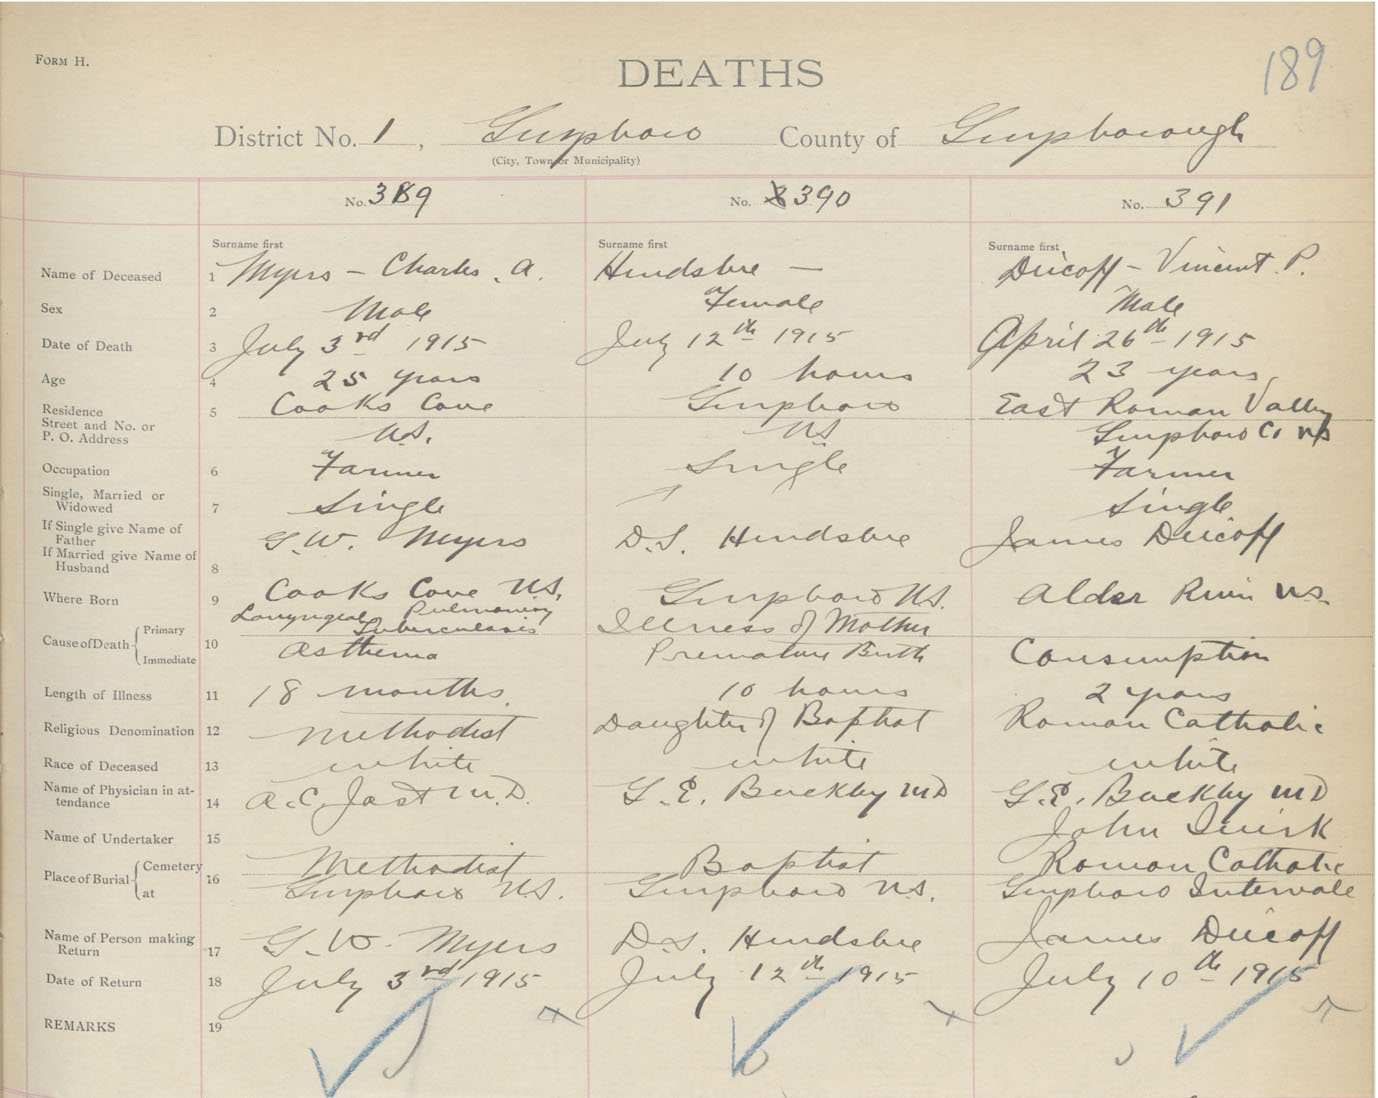 FORM H.
DEATHS
189
District No. 1, Guysboro County of Guysborough
(City, Town or Municipality)
No. 389 No. 390 No. 391
Surname first Surname first Surname first
Name of Deceased 1 Myers - Charles . A. - Vincent P.
Sex 2 Male Female Male
Date of Death 3 July 3rd 1915 July 12th 1915 April 26th 1915
Age 4 25 years 10 hours 23 years
Residence 5 Cooks Cove Guysboro East Roman Valley
Street and No. or
P. O. Address N.S. NS Guysboro Co NS
Occupation 6 Farmer Single Farmer
Single, Married or
Widowed 7 Single Single
If Single give Name of
Father G. W. Myers D.S. James
If Married give Name of
Husband 8
Where Born 9 Cooks Cove N.S. Guysboro N.S. Alder River N.S.
Laryngeal Pulmonary
Cause of Death Primary Tuberculosis Illness of Mother
10
Immediate Asthema Premature Birth Consumption
Length of Illness 11 18 months 10 hours 2 years
Religious Denomination 12 Methodist Daughter of Baptist Roman Catholic
Race of Deceased 13 white white white
Name of Physician in at-
tendance 14 A. C. Jost M.D. G. E. Buckley MD G. E. Buckley MD
Name of Undertaker 15 John Quirk
Place of Burial Cemetery 16 Methodist Baptist Roman Catholic
at Guysboro N.S. Guysboro N.S. Guysboro Intervale
Name of Person making
Return 17 G. W. Myers D.S. James
Date of Return 18 July 3rd 1915 July 12th 1915 July 10th 1915
REMARKS 19